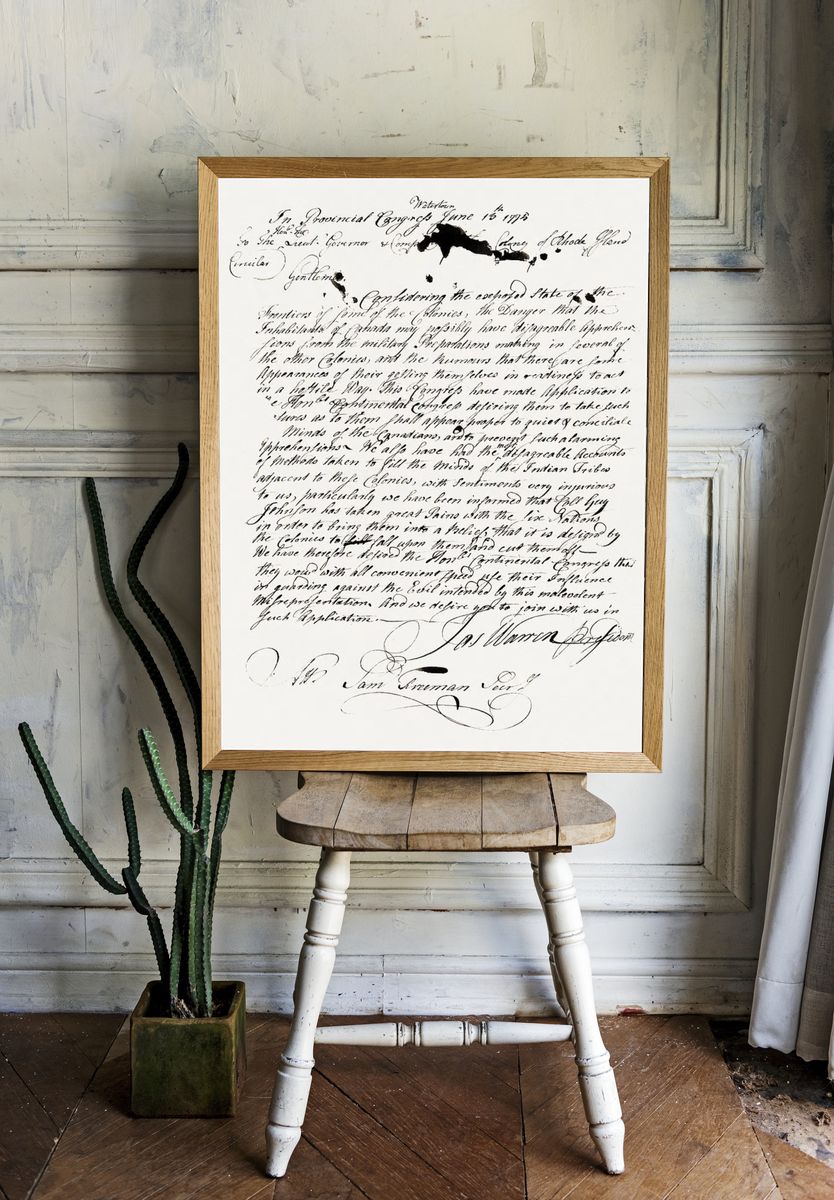 Watertown
In Provincial Congress June 13th 1775
Honble
To the Lieut. Governor & Comp Colony of Rhode Island
Circular
Gentlemen
Considering the exposed State of the
Frontiers of some of the Colonies, the Danger that the
Inhabitants of Canada may possibly have disagreable Apprehen
sions from the military Preparations making in several of
the other Colonies, and the Rumours that there are some
Appearances of their getting themselves in readiness to act
in a hostile Way. This Congress have made Application to
Honble Continental Congress desiring them to take such
as to them shall appear proper to quiet & conciliate
Minds of the Canadians and to prevent such alarming
Apprehensions. We also have had the most disagreable Accounts
of Methods taken to fill the Minds of the Indian Tribes
adjacent to these Colonies, with Sentiments very injurious
to us, particularly we have been informed that Coll Guy
Johnson has taken great Pains with the Six Nations,
in order to bring them into a Belief, that it is design'd by
the Colonies to fall upon them, and cut them off
We have therefore desired the Honble Continental Congress that
they wou'd with all convenient Speed use their Influence
in guarding against the Evil intended by this malevolent
Misrepresentation. And we desire you to join with us in
such Application.
Jas Warren President
Sam Freeman Secry